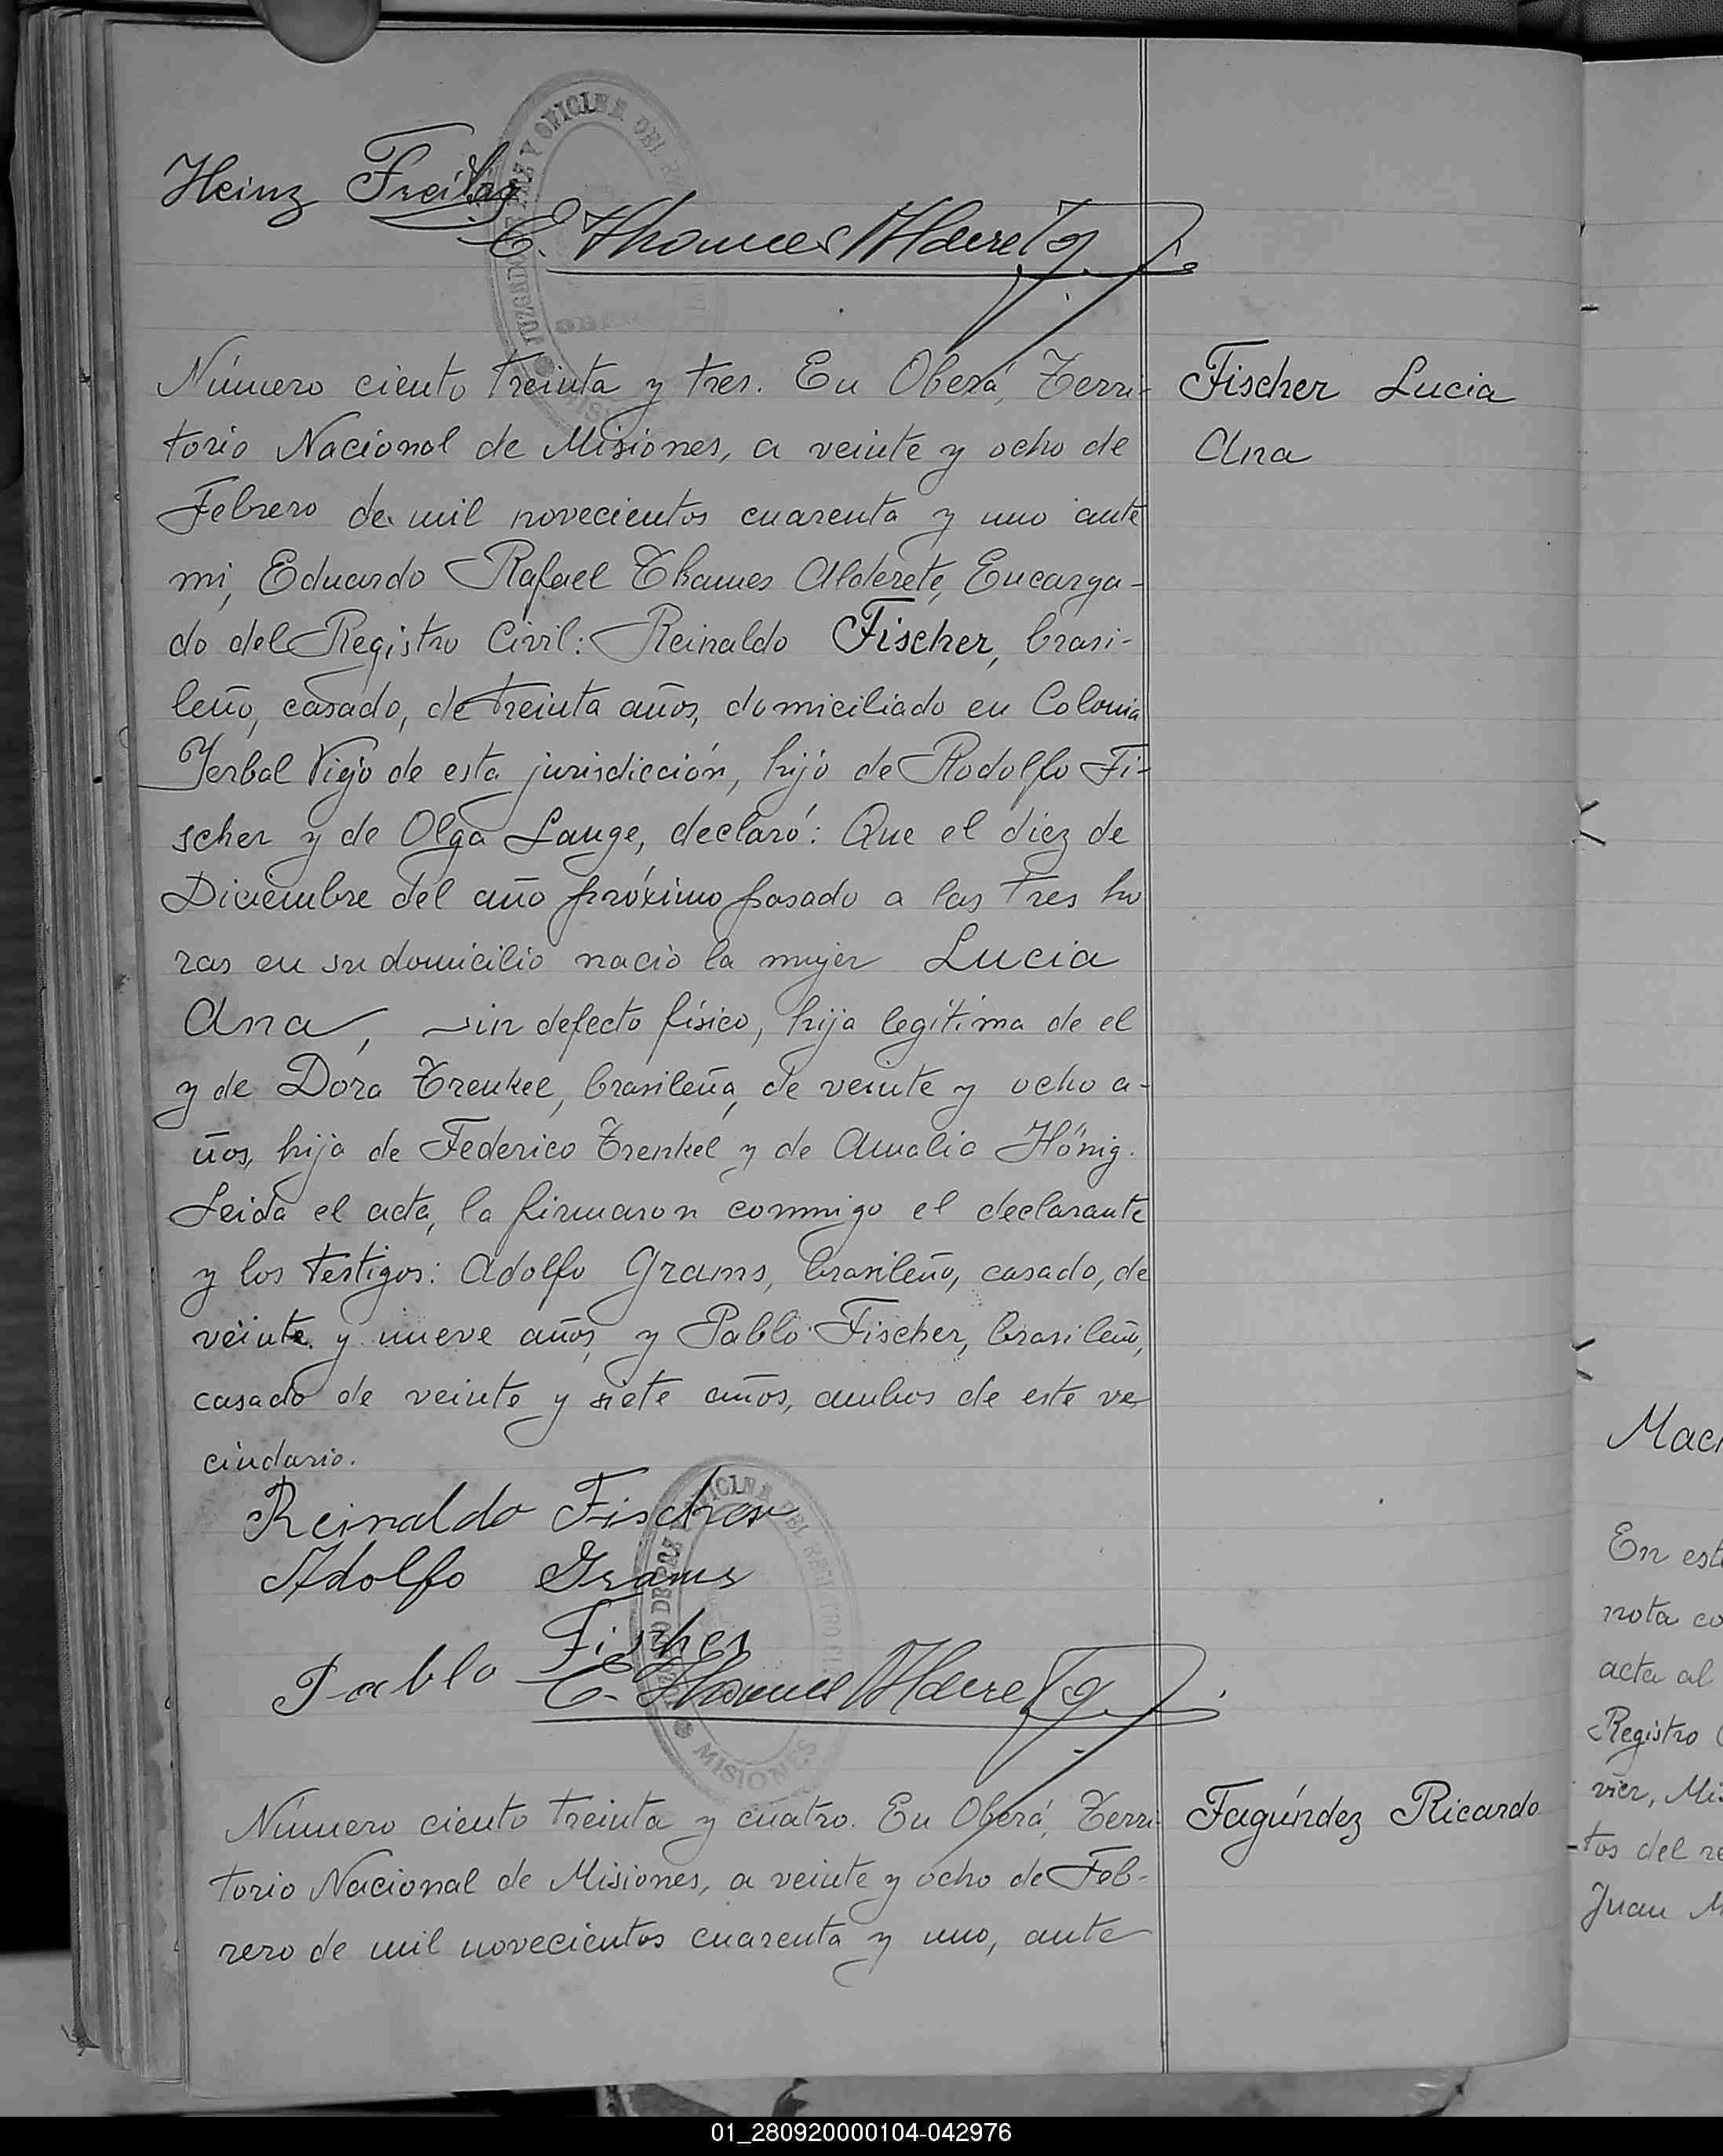 Heinz Freitag
E. Thames Alderete
Número ciento treinta y tres. En Oberá, Terri-
torio Nacional de Misiones, a veinte y ocho de
Febrero de mil novecientos cuarenta y uno ante
mi, Eduardo Rafael Thames Alderete, Encarga-
do del Registro Civil: Reinaldo Fischer, brasi-
leño, casado, de treinta años, domiciliado en Colonia
Yerbal Viejo de esta jurisdicción, hijo de Rodolfo Fi-
scher y de Olga Lange, declaró: Que el diez de
Diciembre del año próximo pasado a las tres ho
ras en su domicilio nació la mujer Lucia
Ana, sin defecto físico, hija legítima de el
y de Dora Trenkel, brasileña, de veinte y ocho a-
ños, hija de Federico Trenkel y de Amalia Hönig.
Leida el acta, la firmaron conmigo el declarante
y los testigos: Adolfo Grams, brasileño, casado, de
veinte y nueve años, y Pablo Fischer, brasileño,
casado de veinte y siete años, ambos de este ve
cindario.
Reinaldo Fischer
Adolfo Grams
Pablo Fischer
E. Thames Alderete
MISIONES
Número ciento treinta y cuatro. En Oberá, Terri-
torio Nacional de Misiones, a veinte y ocho de Feb-
rero de mil novecientos cuarenta y uno, ante
Fischer Lucia
Ana
Fagúndez Ricardo
En est
nota co
acta al
Registro
vier, Mis
tos del re
Juan M
01_280920000104-042976